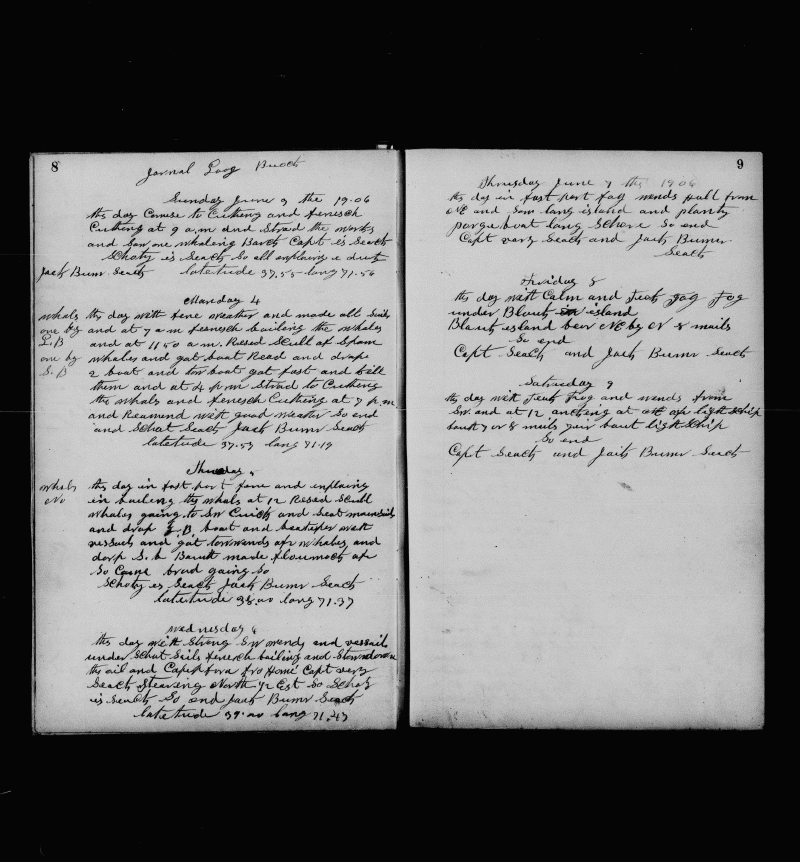 8
Jornal Loog
Sunday June 3 the 1906
ths day Comse to Cutteng and fenesch
Cutteng at 9 a.m and Strad the works
and Saw one whaleng Barck Capt is Seack
Schoty is Seack So all enplaing e dust
Jack Bumr Seack latetude 37.55 long 71.56
Manday 4
whals ths day with fene weather and made all Sails
one by and at 7 a m fenesch baileng the whales
L.B and at 1150 a.m. Resed Scull of Spam
one by whales and gat boat Read and drape
S.B 2 boat and tow boats gat fast and kill
them and at 4 p m Strad to Cutteng
the whals and fenesch Cutteng at 7 p.m
and Reamend with good weather So end
and Schat Seack Jack Bumr Seack
latetude 37.53 long 71.19
5
whals ths day in fast port fene and enplaing
No in baileng ths whals at 12 Resed Scull
whales going to SW Cuick and Seat mainsail
and drap L B boat and beatifer with
vessuls and gat towwends of whales and
dorp S.b made of
So Came brud going So
Schoty es Seack Jack Bumr Seack
latetude 38.00 long 71.37
Wednesday 6
ths day with Strong SW wends and vessail
under Schat Sails fenesch baileng and Stowdown
the oil and fro Home Capt very
Seack Steareng North 1/2 Est So Schoty
is Seack So end Jack Bumr Seack
latetude 39.00 long 71.43
9
Thursday June 7 ths 1906
ths day in fast port fog wends hall from
and Saw lang island and planty
porgue boat lang Schore So end
Capt vary Seack and Jack Bumr
Seack
Friday 8
ths day with Calm and Teck Fog Fog
under Blauk island
Blauk island ber NE by N 8 mails
So end
Capt Seack and Jack Bumr Seack
Saturday 9
ths day with Teck Fog and wends from
SW. and at 12 ancking at off of light Schip
7 or 8 mails light Schip
So end
Capt Seack and Jack Bumr Seack